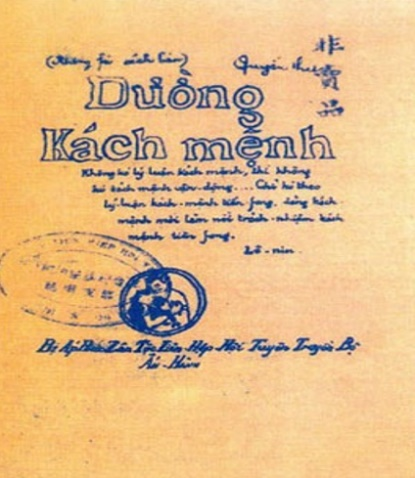 (Không fải sách bán) Quyển thứ
非
賣
品
Đuồng
Kách mệnh
Không kó lý luận kách mệnh, thì không
kó kách mệnh vận-động.... Chỉ kó theo
lý luận kách-mệnh tiền fong, đảng kách
mệnh mới làm nổi trách-nhiệm kách
mệnh tiền fong.
Lê-nin
Bị Áp Bức Dân Tộc Liên-Hợp-Hội Tuyên Truyền Bộ
Ấn-Hành